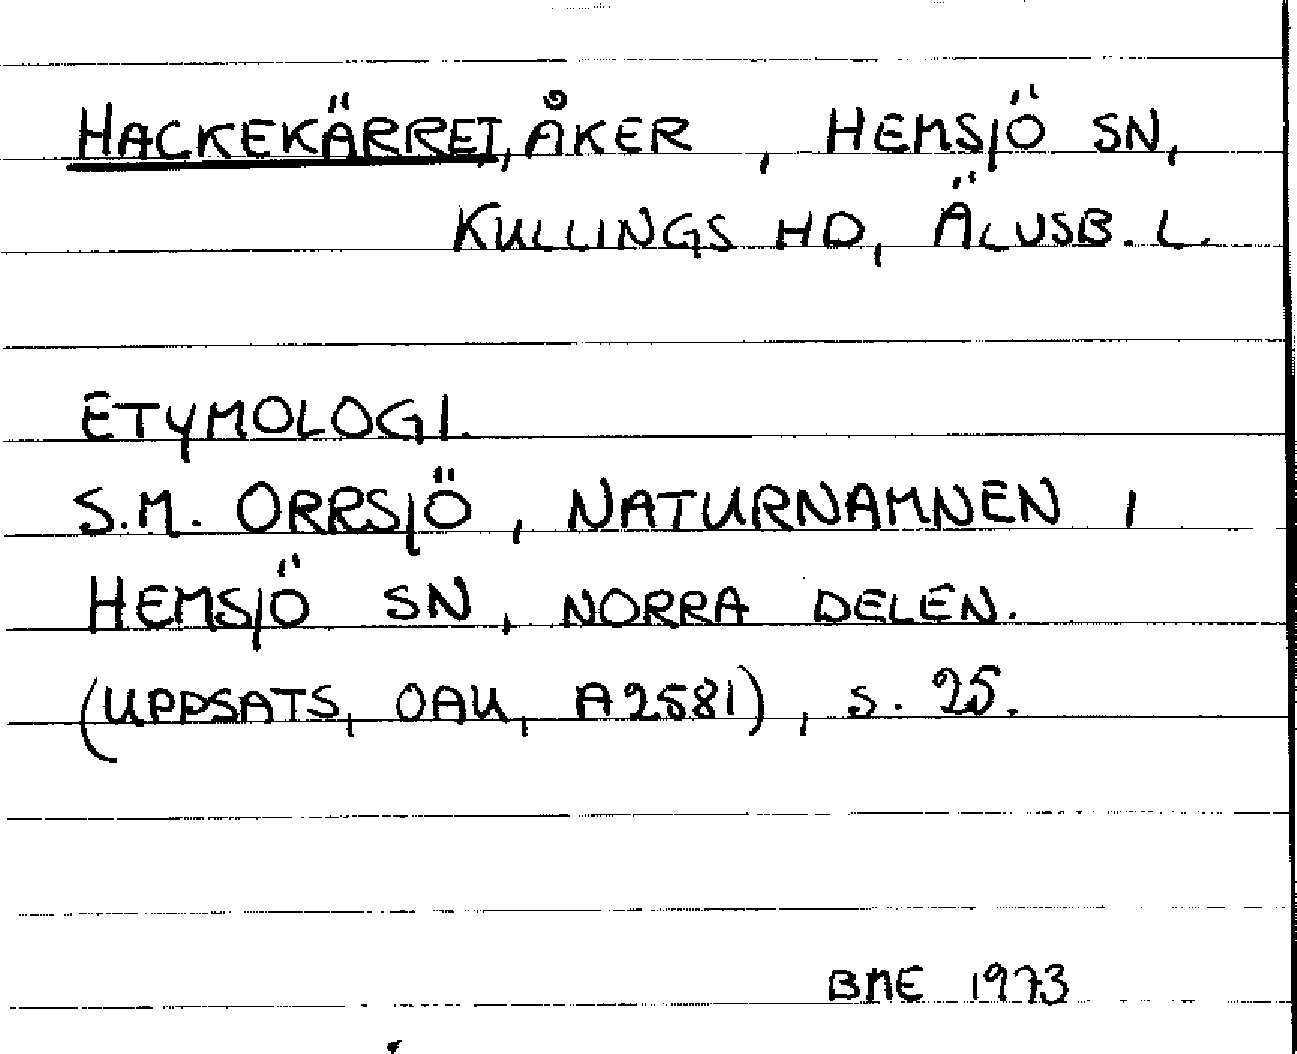 HACKEKÄRRET, ÅKER, HEMSJÖ SN,
KULLINGS HD, ÄLVSB. L.
ETYMOLOGI.
S.M. ORRSJÖ, NATURNAMNEN I
HEMSJÖ SN, NORRA DELEN.
(UPPSATS, OAU, A2581), S. 25.
BME 1973